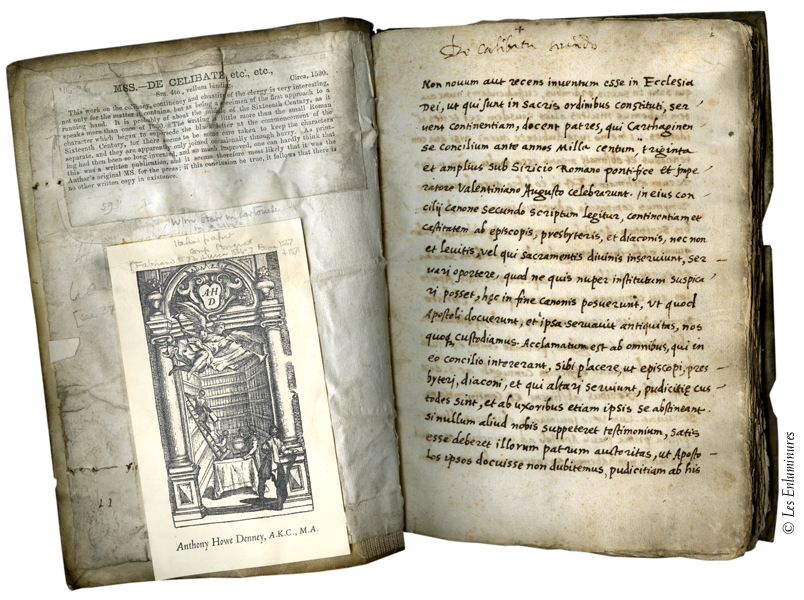 MSS.—DE CELIBATE, etc., etc.,
Sm. 4to, vellum binding. Circa, 1530.
This work on the celibacy, continency and chastity of the clergy is very interesting,
not only for the matter it contains, but as being a specimen of the first approach to a
running hand. It is probably of about the middle of the Sixteenth Century, as it
speaks more than once of The writing is little more than the small Roman
character which began to supersede the black letter at the commencement of the
Sixteenth Century, for there seems to be some care taken to keep the characters
separate, and they are apparently only joined occasionally through hurry. As print-
ing had then been so long invented, and so much improved, one can hardly think that
this was a written publication, and it seems therefore most likely that it was the
Author's original MS. for the press; if this conclusion be true, it follows that there is
no other written copy in existence.
Italian paper
AHD
Anthony Howe Denney, A.K.C., M.A.
De Calibatu
Non novum aut recens inventum esse in Ecclesia
Dei, ut qui sunt in sacris ordinibus constituti, ser
vent continentiam, docent patres, qui Carthaginen
se Concilium ante annos Mille centum, triginta
et amplius sub Siricio Romano pontifice et Impe
ratore Valentiniano Augusto celebrarunt. In eius con
cilij canone secundo scriptum legitur, continentiam et
castitatem ab episcopis, presbyteris, et diaconis, nec non
et levitis, vel qui sacramentis divinis inserviunt, ser
vari oportere, quod ne quis nuper institutum suspica
ri posset, hęc in fine canonis posuerunt, Ut quod
Apostoli docuerunt, et ipsa servavit antiquitas, nos
quoq custodiamus. Acclamatum est ab omnibus, qui in
eo concilio intererant, sibi placere, ut episcopi, pres
byteri, diaconi, et qui altari serviunt, pudicitię cus
todes sint, et ab uxoribus etiam ipsis se abstineant.
si nullum aliud nobis suppeteret testimonium, satis
esse deberet illorum patrum auctoritas, ut Aposto
los ipsos docuisse non dubitemus, pudicitiam ab his
© Les Enluminures